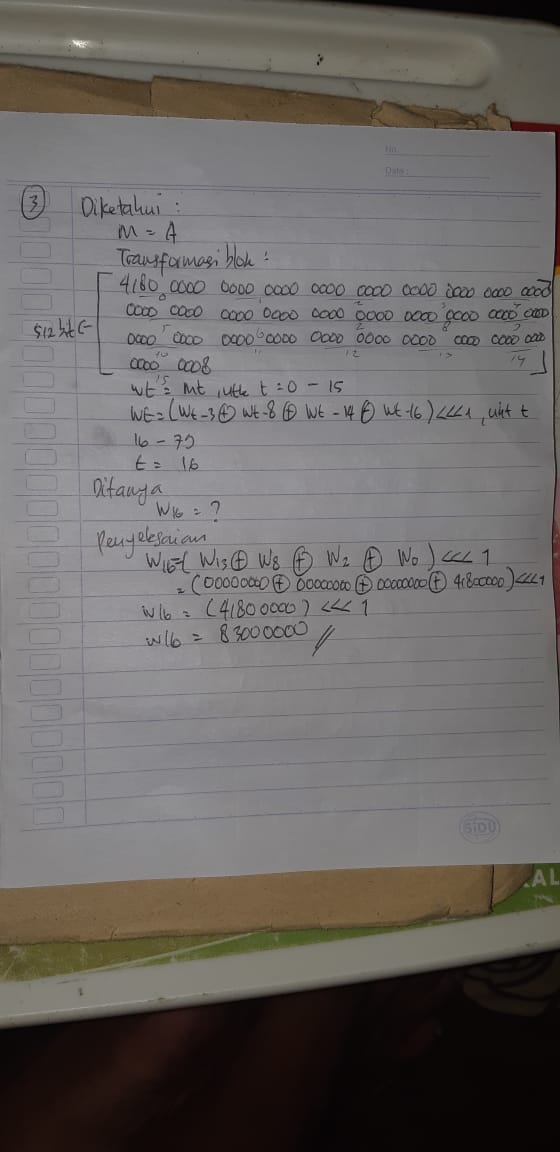 No.
Date:
3 Diketahui :
M = A
Transformasi blok :
4180 0000 0000 0000 0000 0000 0000 0000 0000 0000
0000 0000 0000 0000 0000 0000 0000 0000 0000 0000
512 bit 0000 0000 0000 0000 0000 0000 0000 0000 0000 0000
0000 0008
Wt = Mt, utk t = 0 - 15
Wt = (Wt-3 ⊕ Wt-8 ⊕ Wt-14 ⊕ Wt-16) <<< 1, unt t
16 - 79
t = 16
Ditanya
W16 = ?
Penyelesaian
W16 = ( W13 ⊕ W8 ⊕ W2 ⊕ W0 ) <<< 1
= (00000000 ⊕ 00000000 ⊕ 00000000 ⊕ 41800000) <<< 1
W16 = (41800000) <<< 1
W16 = 83000000 //
SIDU
AL